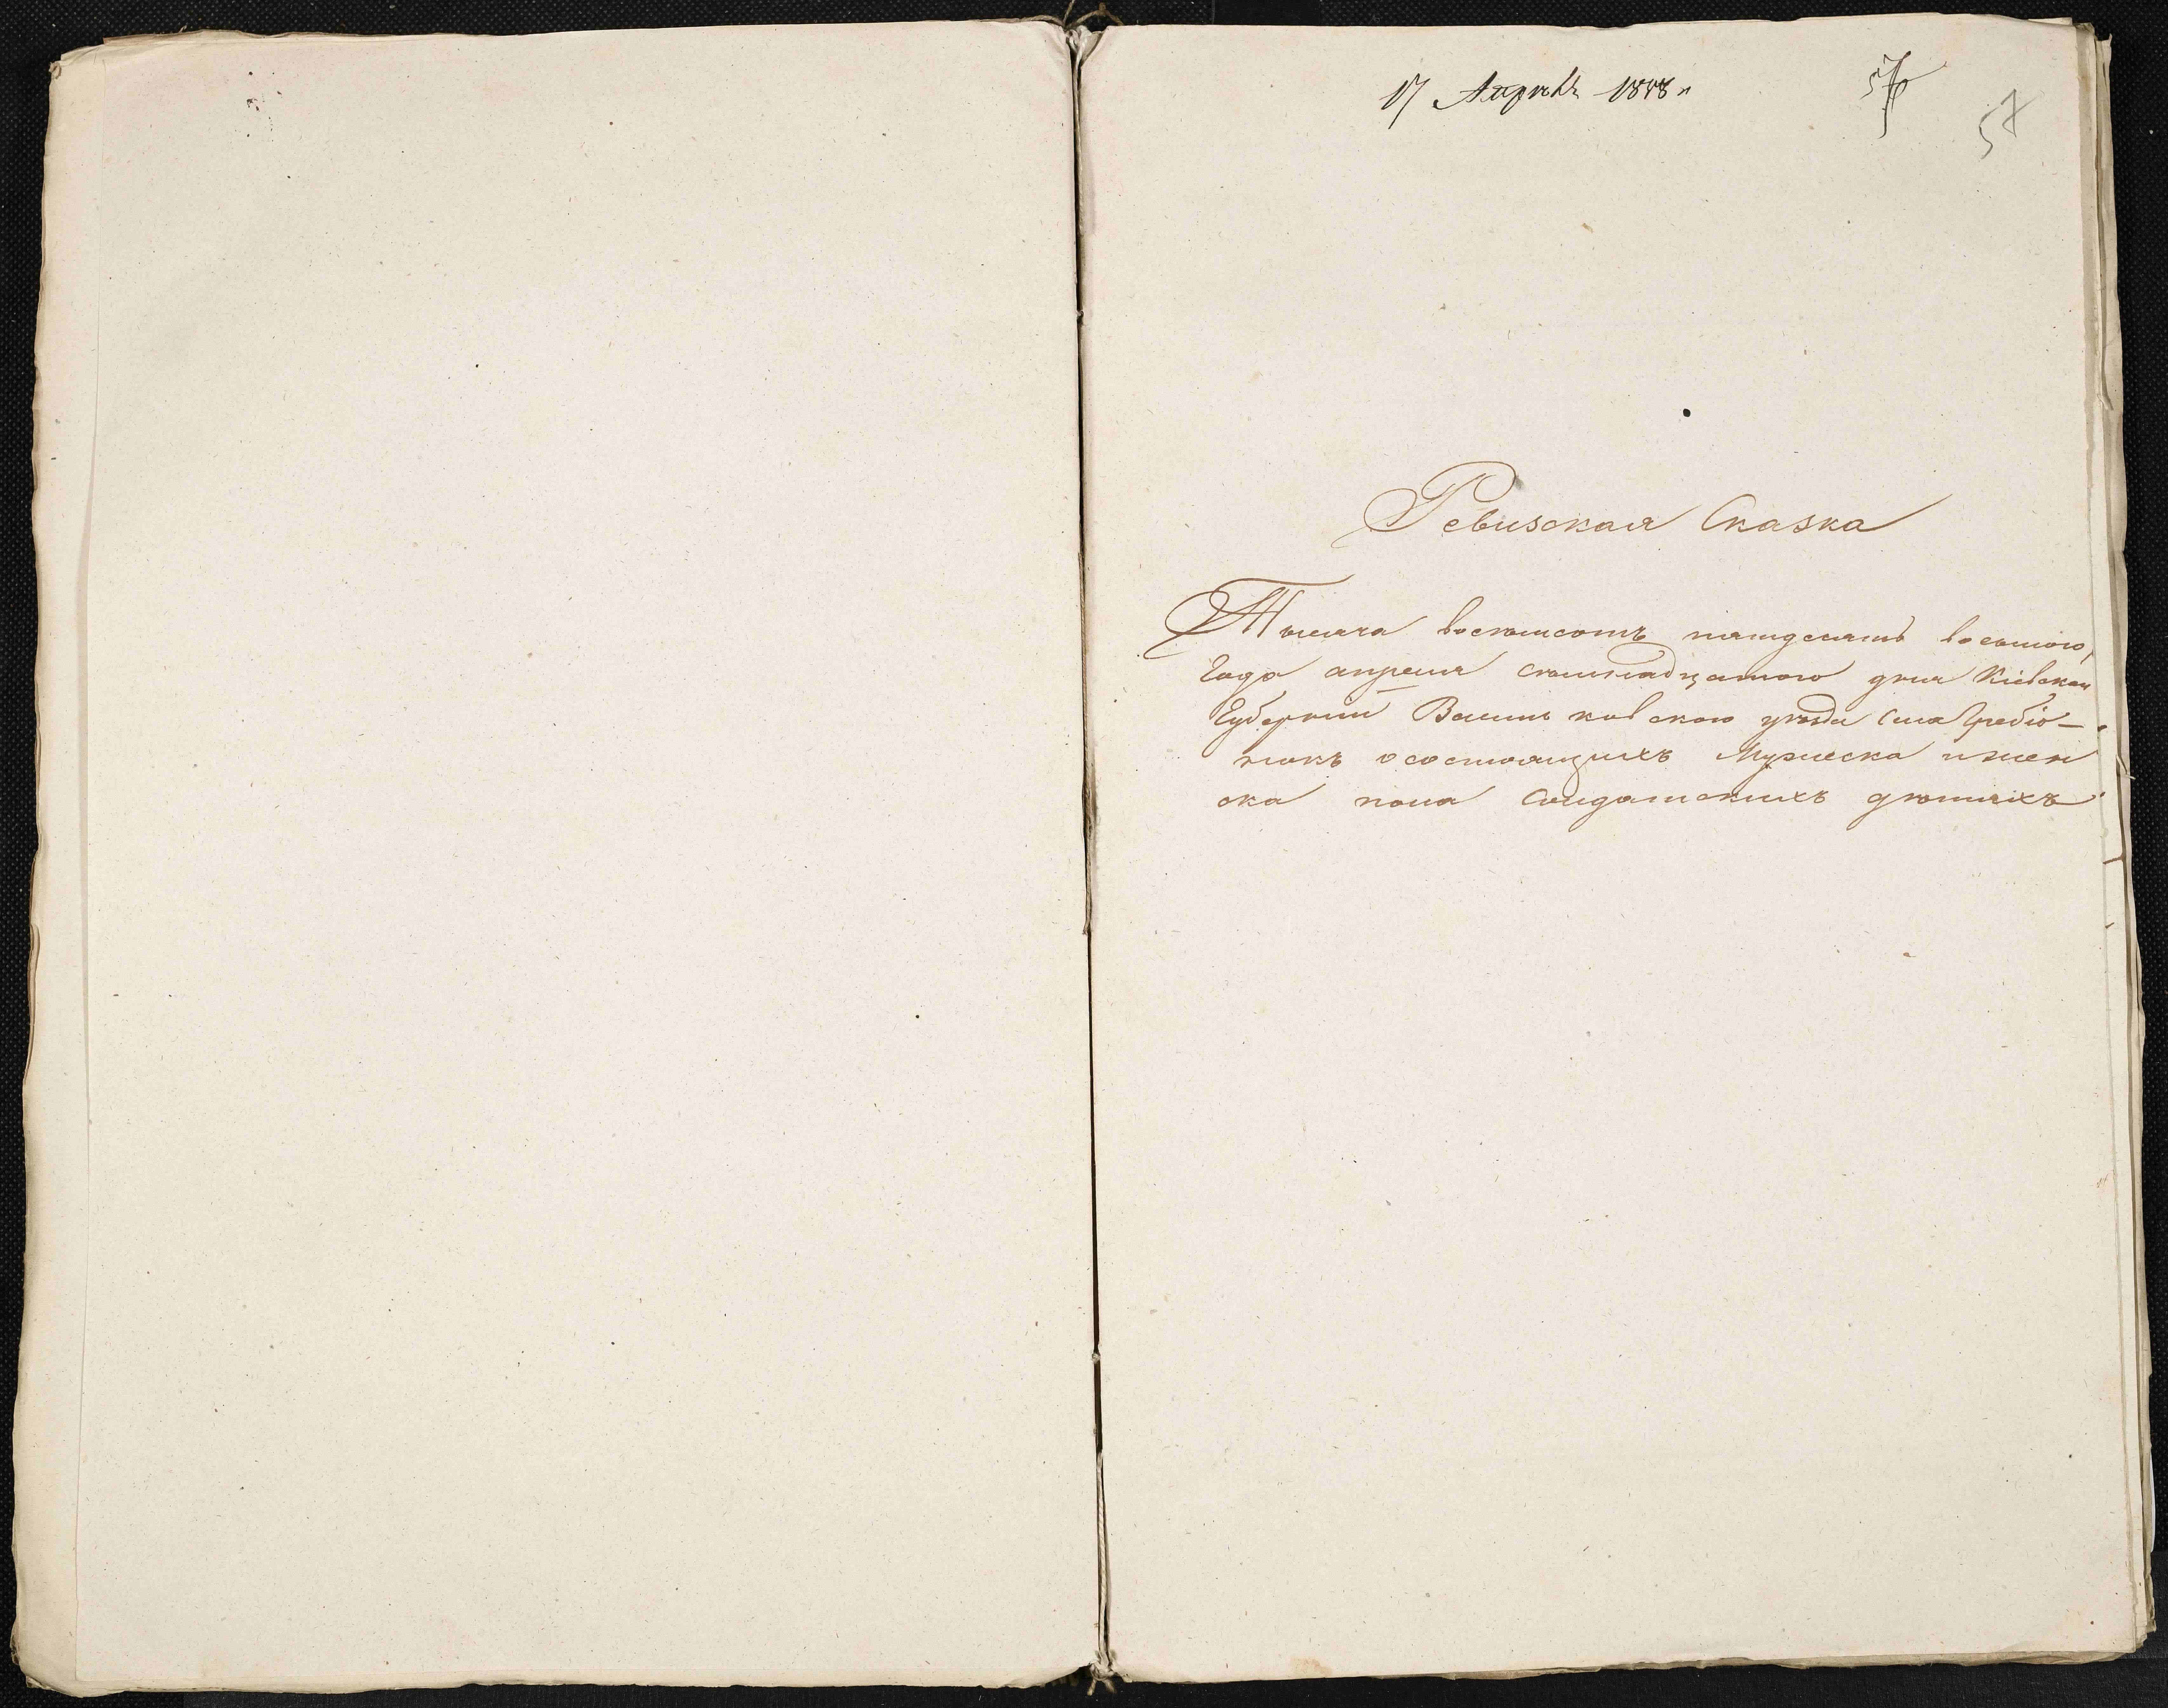 17 Апрѣль 1858 г
57
57
Ревизская Сказка
Тысяча восемьсотъ пятдесятъ восьмого,
Года апреля семьнадцатого дния Кіевской
Губернии Васильковского уѣзда Села Гребіо-
нокъ осостоящихъ Мужеска ижен
ска пола Солдатскихъ дѣтяхъ